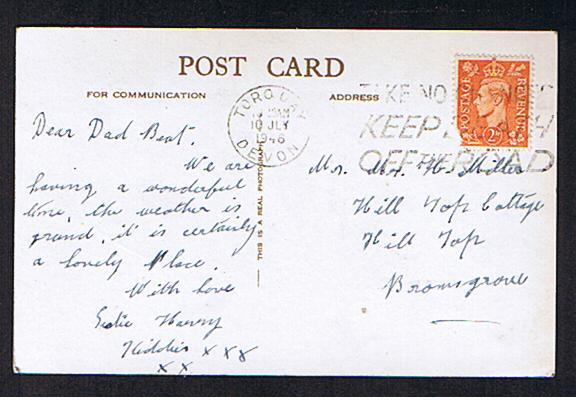 POST CARD
FOR COMMUNICATION
ADDRESS
TORQUAY
10 JLY
1946
DEVON
TAKE NO
KEEP
OFF THE ROAD
POSTAGE
REVENUE
2D
THIS IS A REAL PHOTOGRAPH
Dear Dad Beat.
We are
having a wonderful
time, the weather is
grand, it is certainly
a lovely Place.
With love
Harry
Kiddies x x x
x x
Mr. Mrs. H. Miller
Hill Top Cottage
Hill Top
Bromsgrove